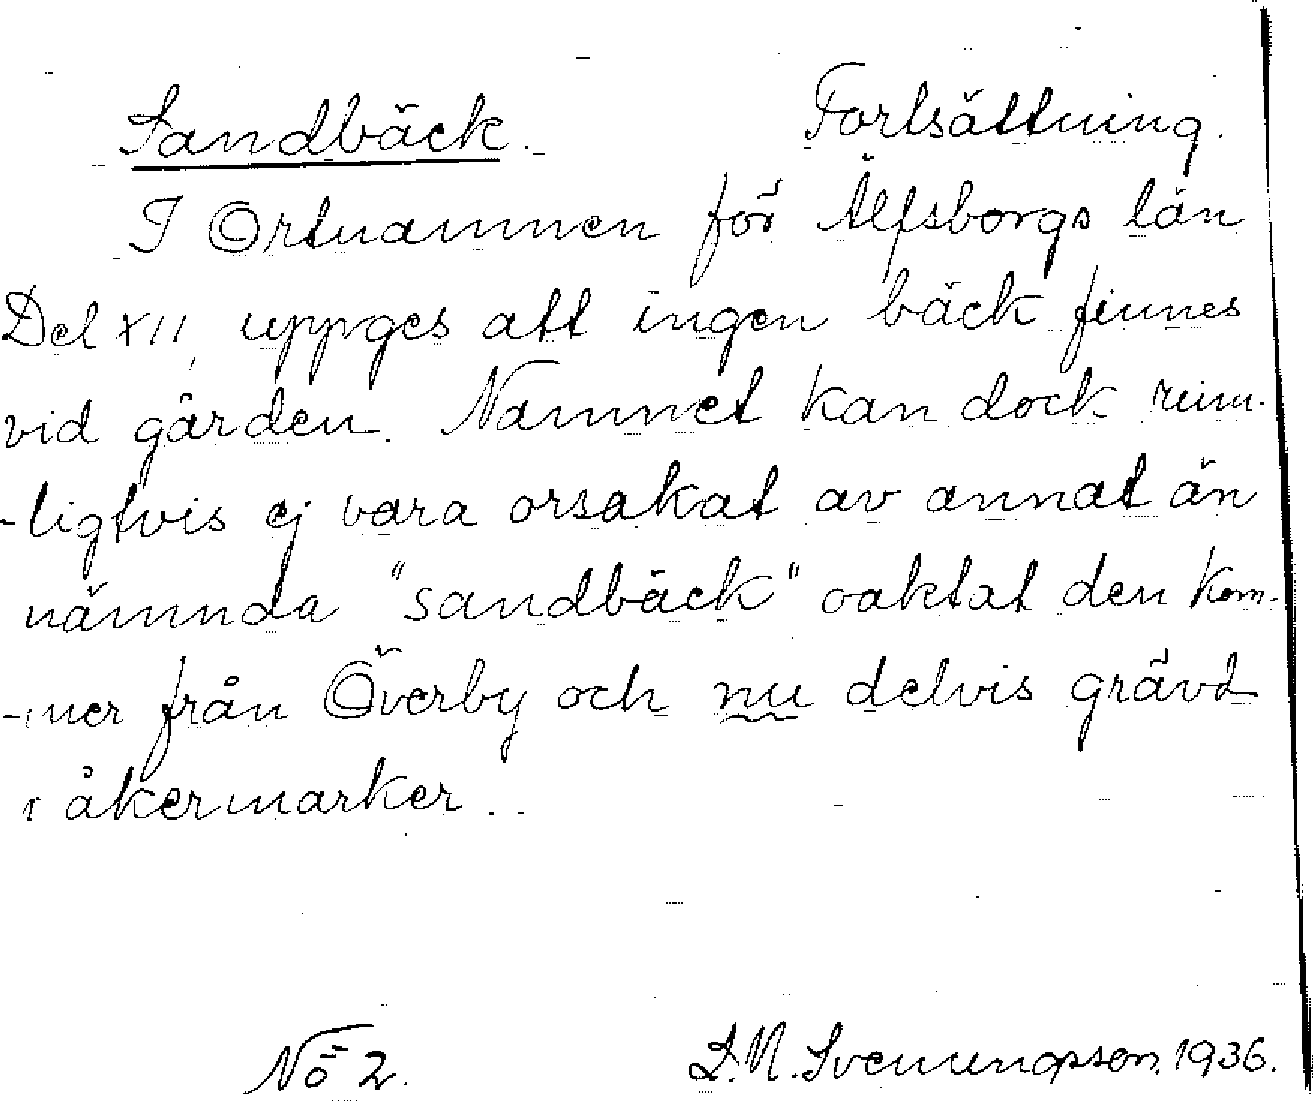 Sandbäck. Fortsättning.
I Ortnamnen för Älfsborgs län
Del XII, uppges att ingen bäck finnes
vid gården. Namnet kan dock rim-
-ligtvis ej vara orsakat av annat än
nämnda "sandbäck" oaktat den kom-
-mer från Överby och nu delvis grävd
i åkermarker.
No 2. L.N. Svenungsson. 1936.